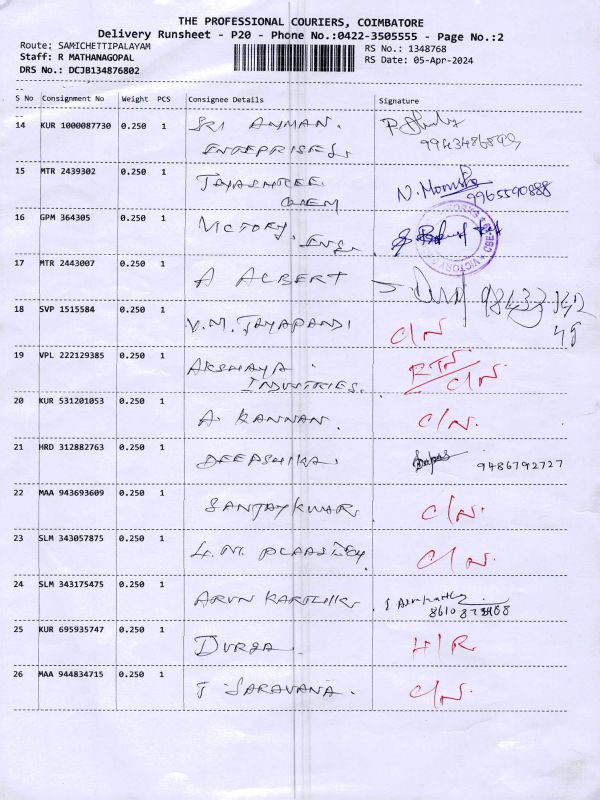 THE PROFESSIONAL COURIERS, COIMBATORE
Delivery Runsheet - P20 - Phone No.:0422-3505555 - Page No.:2
Route: SAMICHETTIPALAYAM
RS No.: 1348768
Staff: R MATHANAGOPAL
RS Date: 05-Apr-2024
DRS No.: DCJB134876802
S No Consignment No Weight PCS Consignee Details Signature
14 KUR 1000087730 0.250 1 SRI AYMAN.
ENTERPRISES.
15 MTR 2439302 0.250 1 JAYASHREE
CHEM
9965590888
16 GPM 364305 0.250 1 VICTORY. ENG.
VICTORY
CBE
17 MTR 2443007 0.250 1 A ALBERT
18 SVP 1515584 0.250 1 V.M. JAYAPANDI C/N
19 VPL 222129385 0.250 1 AKSHAYA RTN.
INDUSTRIES. C/N.
20 KUR 531201053 0.250 1 A. KANNAN. C/N.
21 HRD 312882763 0.250 1 DEEPSHIKA. 9486792727
22 MAA 943693609 0.250 1 SANJAYKUMAR. C/N.
23 SLM 343057875 0.250 1 C/N.
24 SLM 343175475 0.250 1 ARUN KARTHIK
25 KUR 695935747 0.250 1 DURGA. H/R
26 MAA 944834715 0.250 1 J SARAVANA. C/N.